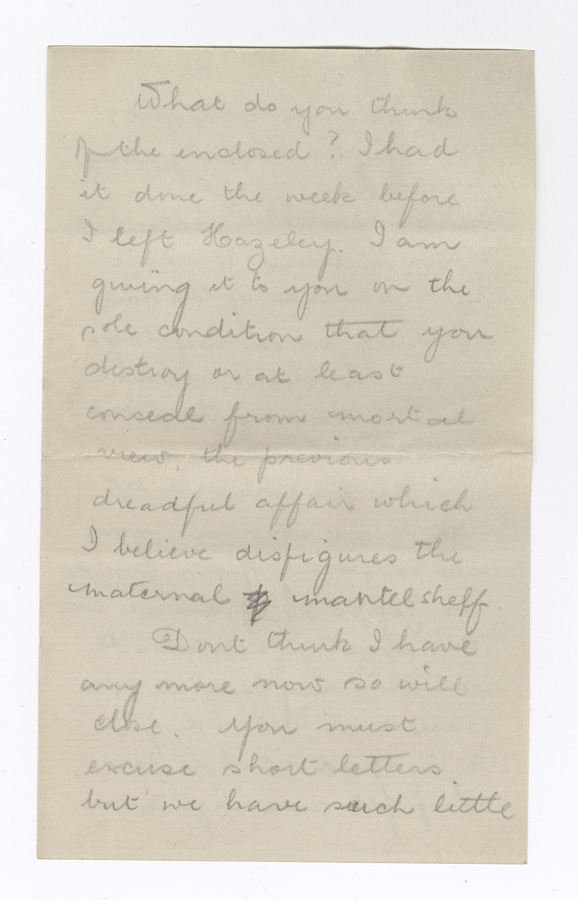 What do you think
of the enclosed? I had
it done the week before
I left Hazeley. I am
giving it to you on the
sole condition that you
destroy or at least
conceal from mortal
view, the previous
dreadful affair which
I believe disfigures the
maternal mantelshelf.
Dont think I have
any more now so will
close. You must
excuse short letters
but we have such little